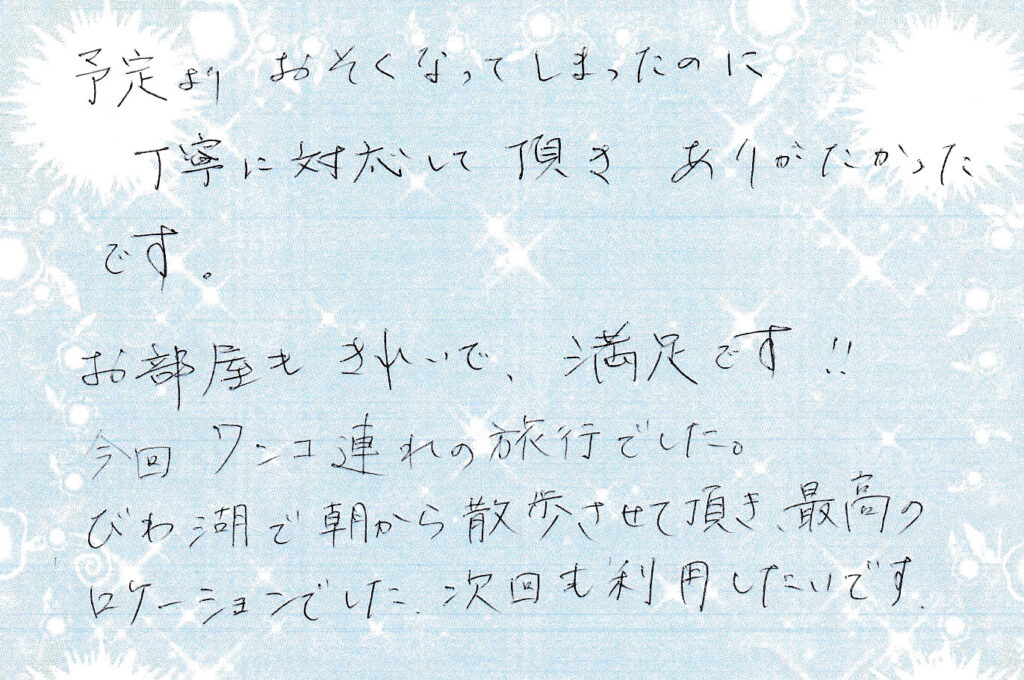 予定より おそくなってしまったのに
丁寧に対応して頂き ありがたかった
です。
お部屋も きれいで、満足です!!
今回 ワンコ連れの旅行でした。
びわ湖で朝から散歩させて頂き、最高の
ロケーションでした. 次回も利用したいです.